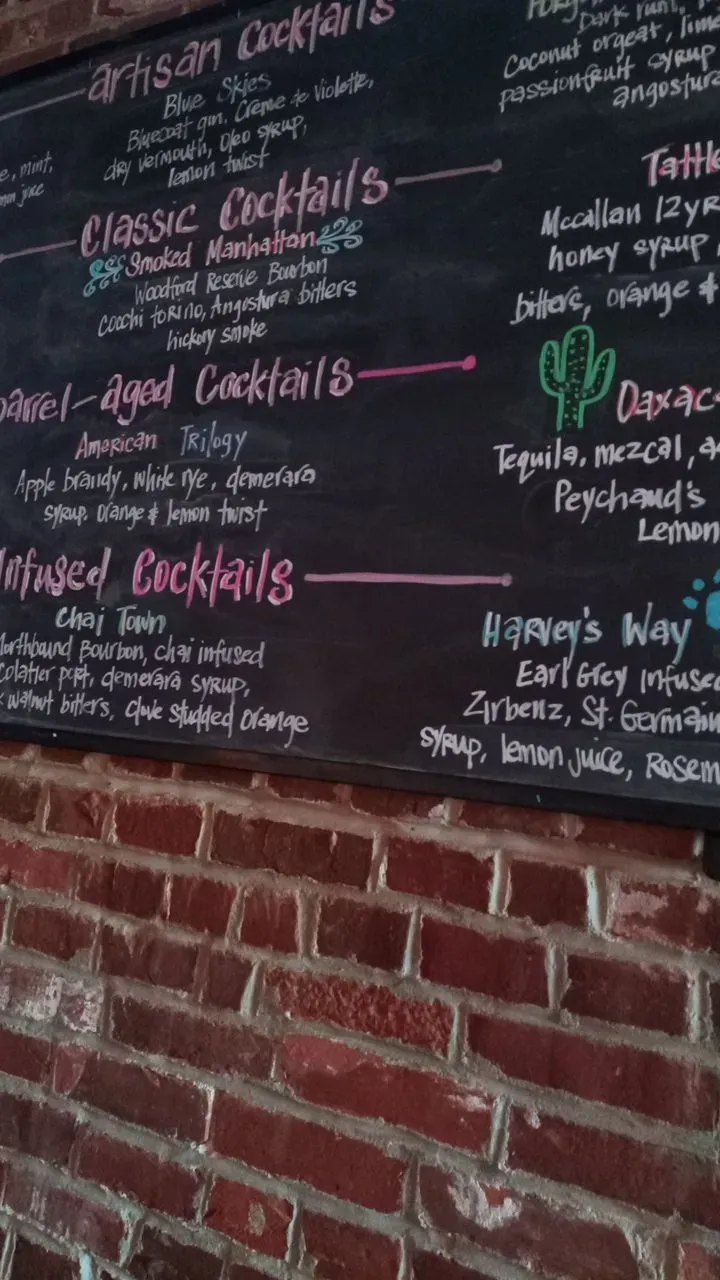 artisan Cocktails
Blue Skies
Bluecoat gin, Creme de Violette,
dry vermouth, Oleo syrup,
lemon twist
e, mint,
juice
Classic Cocktails
Smoked Manhattan
Woodford Reserve Bourbon
Cocchi toRiNo, Angostura bitters
hickory smoke
barrel-aged Cocktails
AmeRican TRilogy
Apple brandy, white rye, demerara
syrup. Orange & lemon twist
Infused Cocktails
Chai Town
Northbound Bourbon, chai infused
colatier port, demerara syrup,
walnut bitters, clove studded orange
Dark rum,
Coconut orgeat, lime
passionfruit syrup
angostura
Tattle
Mccallan 12yR
honey syrup,
bitters, orange &
Oaxac
Tequila, mezcal, a
Peychaud's
Lemon
HaRvey's Way
Earl Grey Infused
Zirbenz, St. Germain
syrup, lemon juice, Rosem